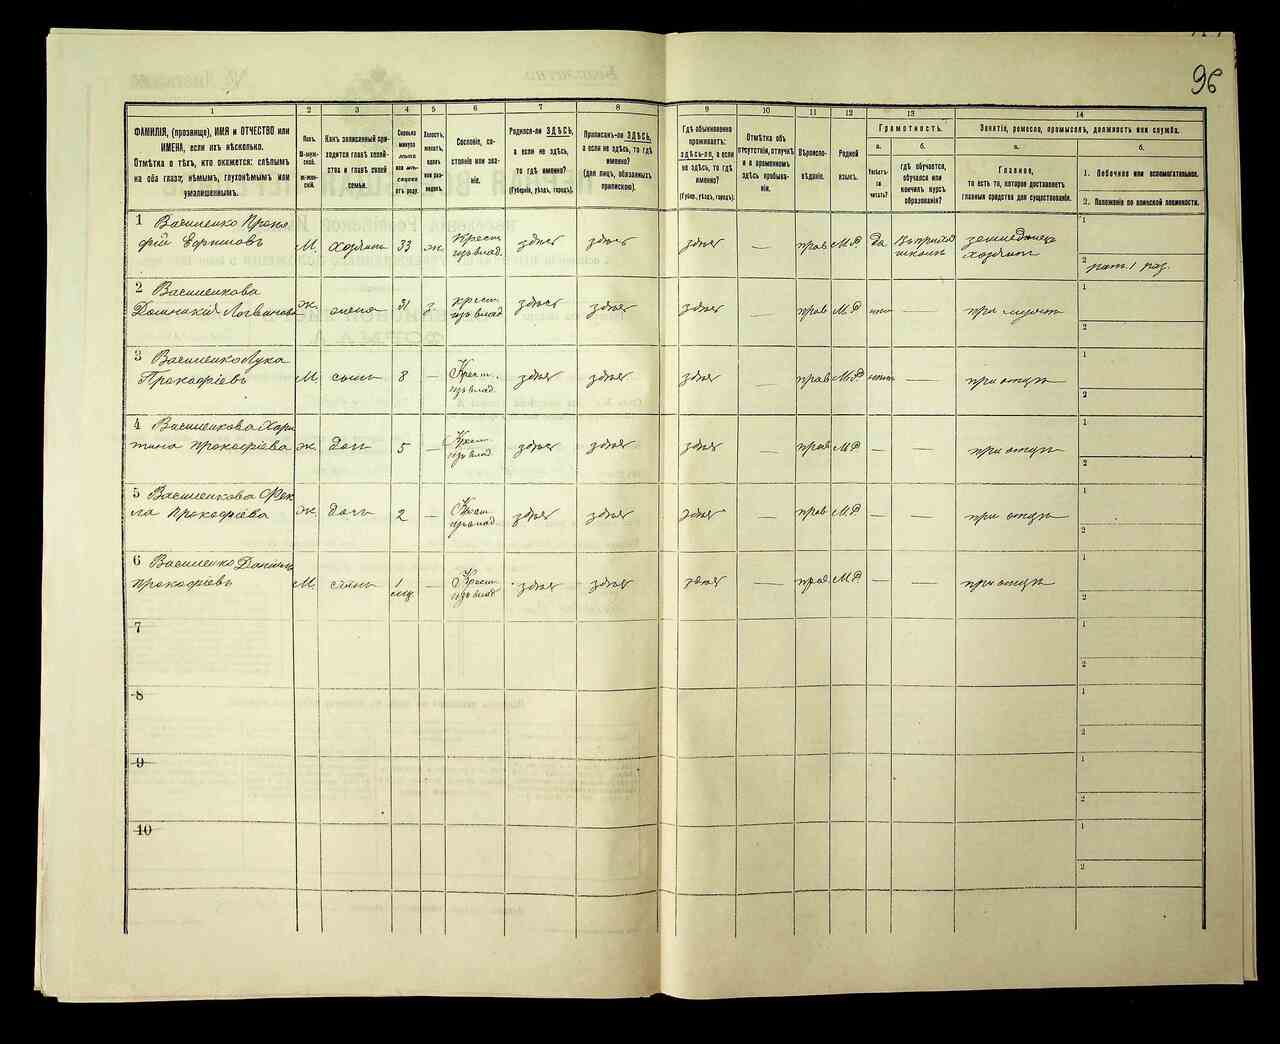 96
1
2
3
4
5
6
7
8
9
10
11
12
13
14
ФАМИЛІЯ, (прозвище), ИМЯ и ОТЧЕСТВО или
ИМЕНА, если ихъ нѣсколько.
Отмѣтка о тѣхъ, кто окажется: слѣпымъ
на оба глаза, нѣмымъ, глухонѣмымъ или
умалишеннымъ.
Полъ.
М-муж-
ской.
ж-жен-
скій.
Какъ записанный при-
ходится главѣ хозяй-
ства и главѣ своей
семьи.
Сколько
минуло
лѣтъ
или мѣ-
сяцевъ
отъ роду.
Холостъ,
женатъ,
вдовъ
или раз-
веденъ.
Сословіе, со-
стояніе или зва-
ніе.
Родился-ли ЗДѢСЬ,
а если не здѣсь,
то гдѣ именно?
(Губернія, уѣздъ, городъ).
Приписанъ-ли ЗДѢСЬ,
а если не здѣсь, то гдѣ
именно?
(для лицъ, обязанныхъ
припискою).
Гдѣ обыкновенно
проживаетъ:
здѣсь-ли, а если
не здѣсь, то гдѣ
именно?
(Губерн., уѣздъ, городъ).
Отмѣтка объ
отсутствіи, отлучкѣ
и о временномъ
здѣсь пребыва-
ніи.
Вѣроиспо-
вѣданіе.
Родной
языкъ.
Грамотность.
а.
Умѣетъ-
ли
читать?
б.
гдѣ обучается,
обучался или
кончилъ курсъ
образованія?
Занятіе, ремесло, промыселъ, должность или служба.
а.
Главное,
то есть то, которое доставляетъ
главныя средства для существованія.
б.
1. Побочное или вспомогательное.
2. Положеніе по воинской повинности.
1 Василенко Проко
фій Ефимовъ М. хозяинъ 33 ж. Крест. изъ влад. здѣсь здѣсь здѣсь — прав М.Р. да хозяинъ
1
2
2 Василенкова
ж. жена 31 з. крест. изъ влад. здѣсь здѣсь здѣсь — прав М.Р. нѣтъ — при мужѣ
1
2
3 Василенко Лука
Прокофіевъ М. сынъ 8 — Крест. изъ влад. здѣсь здѣсь здѣсь — прав М.Р. нѣтъ — при отцѣ
1
2
4 Василенкова Хари
тина Прокофіева ж. дочь 5 — Крест. изъ влад. здѣсь здѣсь здѣсь — прав М.Р. — — при отцѣ
1
2
5 Василенкова Фек
ла Прокофіева ж. дочь 2 — Крест. изъ влад. здѣсь здѣсь здѣсь — прав М.Р. — — при отцѣ
1
2
6 Василенко Даніилъ
Прокофіевъ М. сынъ 1 мц. — Крест. изъ влад. здѣсь здѣсь здѣсь — прав М.Р. — — при отцѣ
1
2
7
1
2
8
1
2
9
1
2
10
1
2